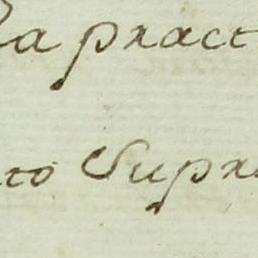 la pract
to Supr